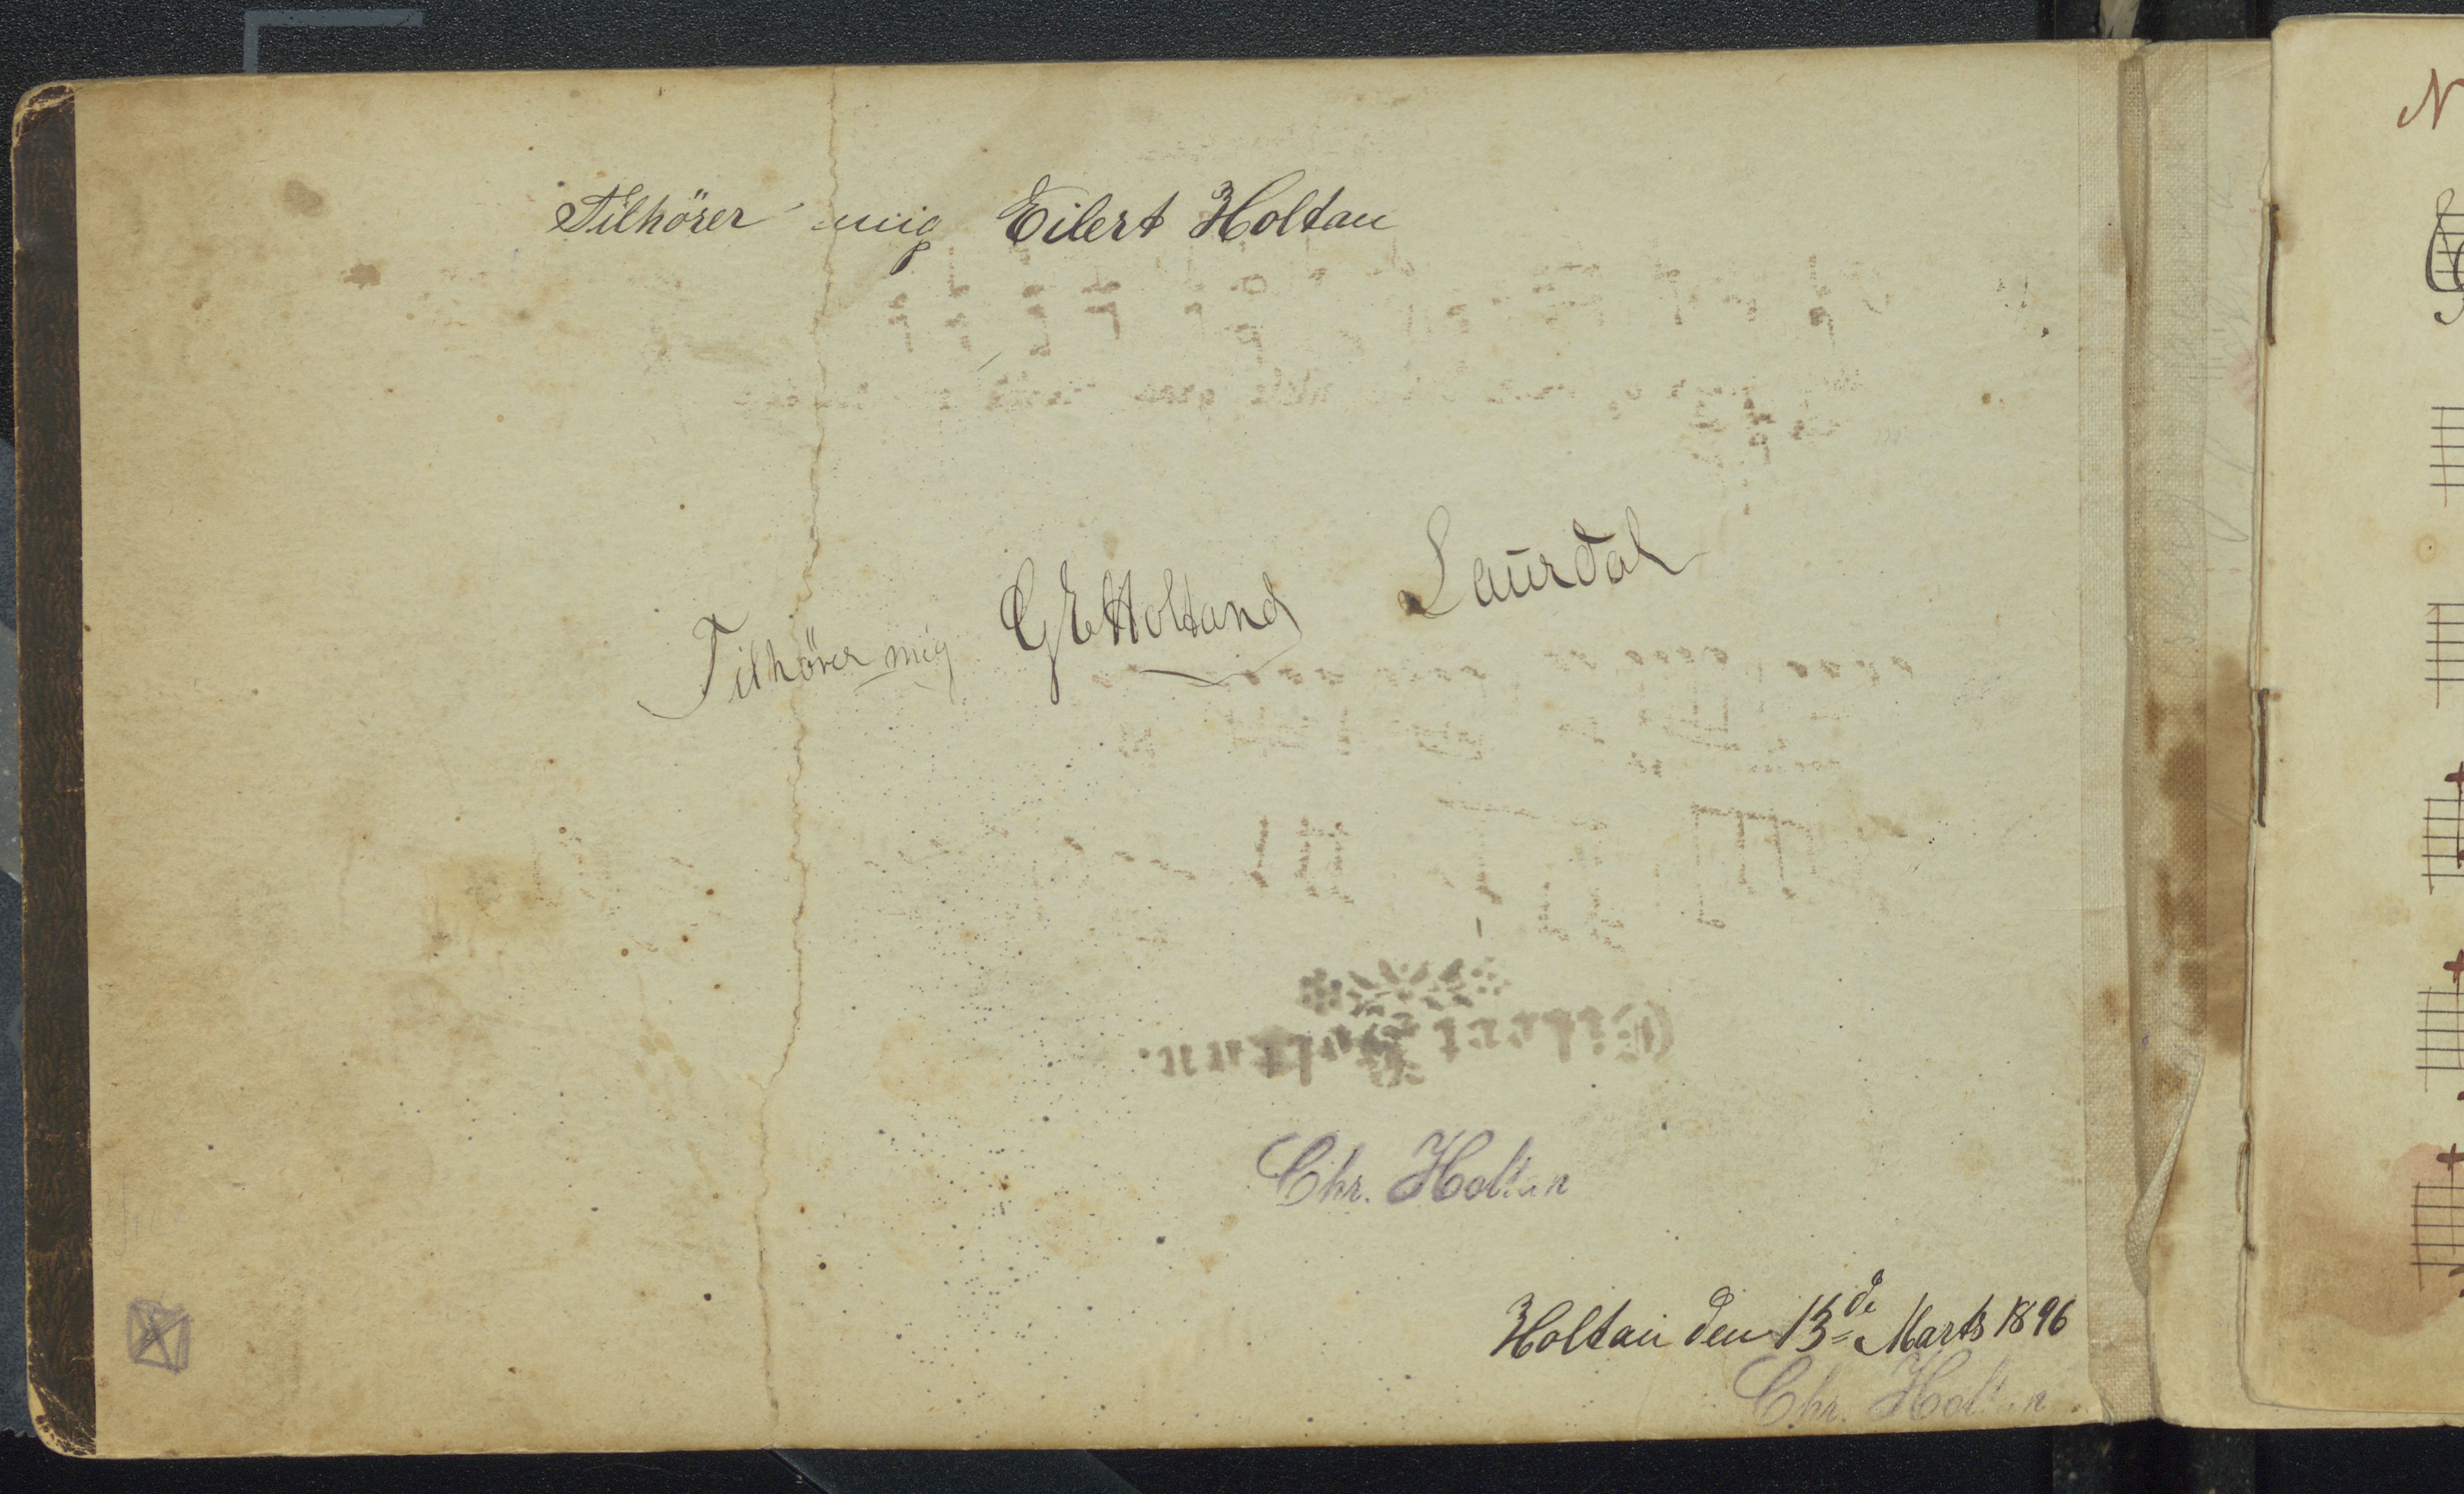 Tilhörer mig Eilert Holtau
Tilhörer mig G E Holtand Laurdal
Eilert Holtan.
Chr. Holtan
Holtau den 13de Marts 1896
Chr. Holtan
N